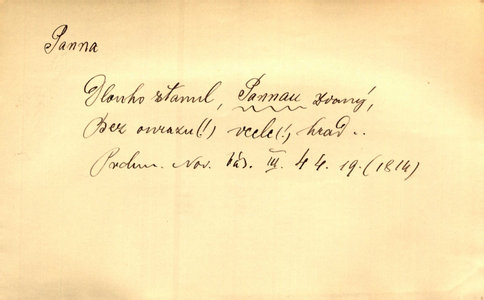 Panna
Dlouho stanul, Pannau zvaný,
Bez ourazu(!), vcele(!), hrad..
Puchm. Nov. bás. III. 44. 19. (1814)